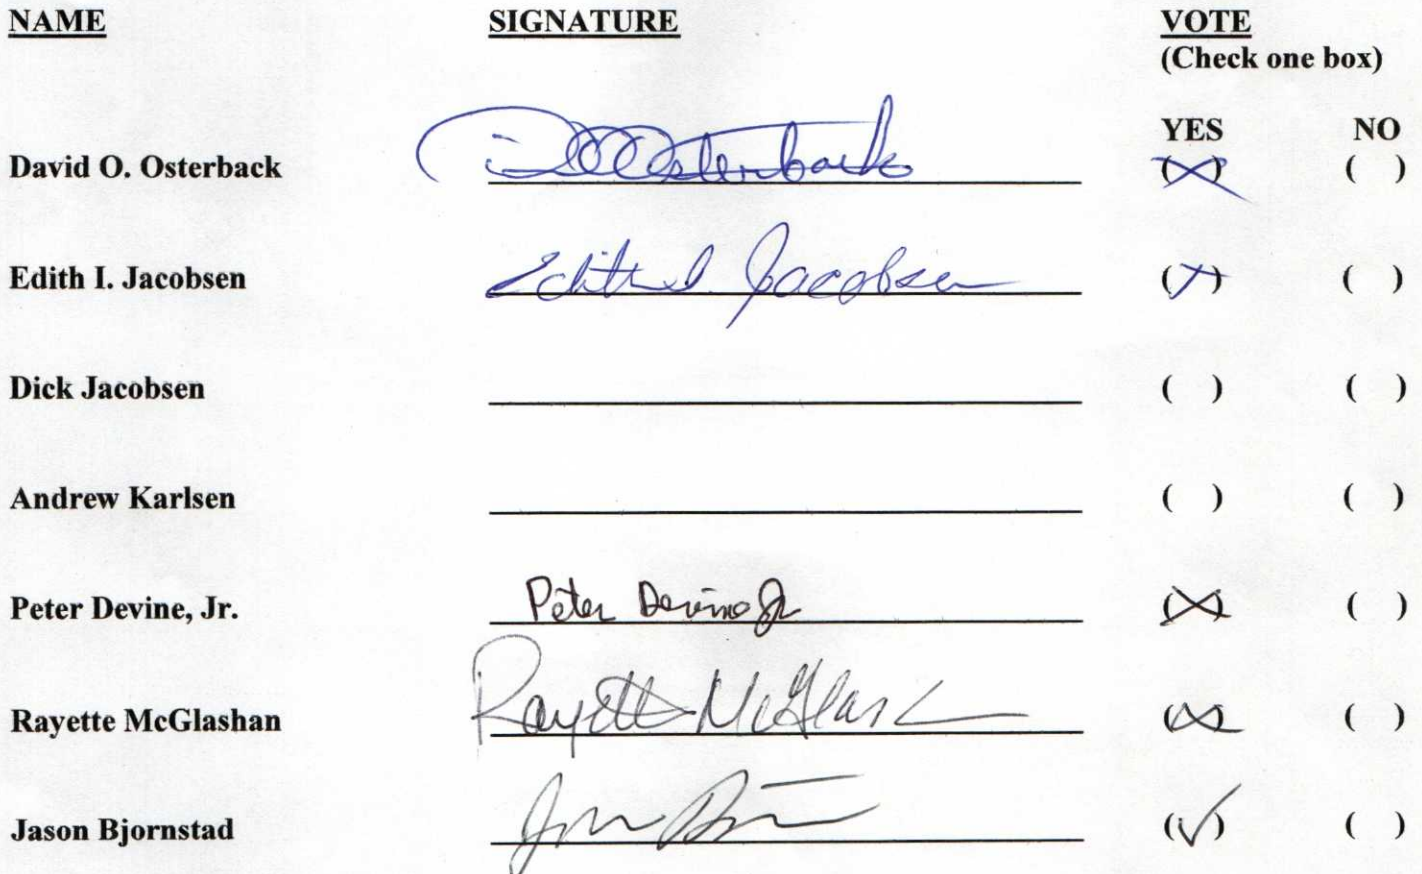 NAME SIGNATURE VOTE
(Check one box)
YES NO
David O. Osterback D O Osterback (X) ( )
Edith I. Jacobsen Edith I. Jacobsen (X) ( )
Dick Jacobsen ( ) ( )
Andrew Karlsen ( ) ( )
Peter Devine, Jr. Peter Devine Jr (X) ( )
Rayette McGlashan Rayette McGlash (X) ( )
Jason Bjornstad (✓) ( )